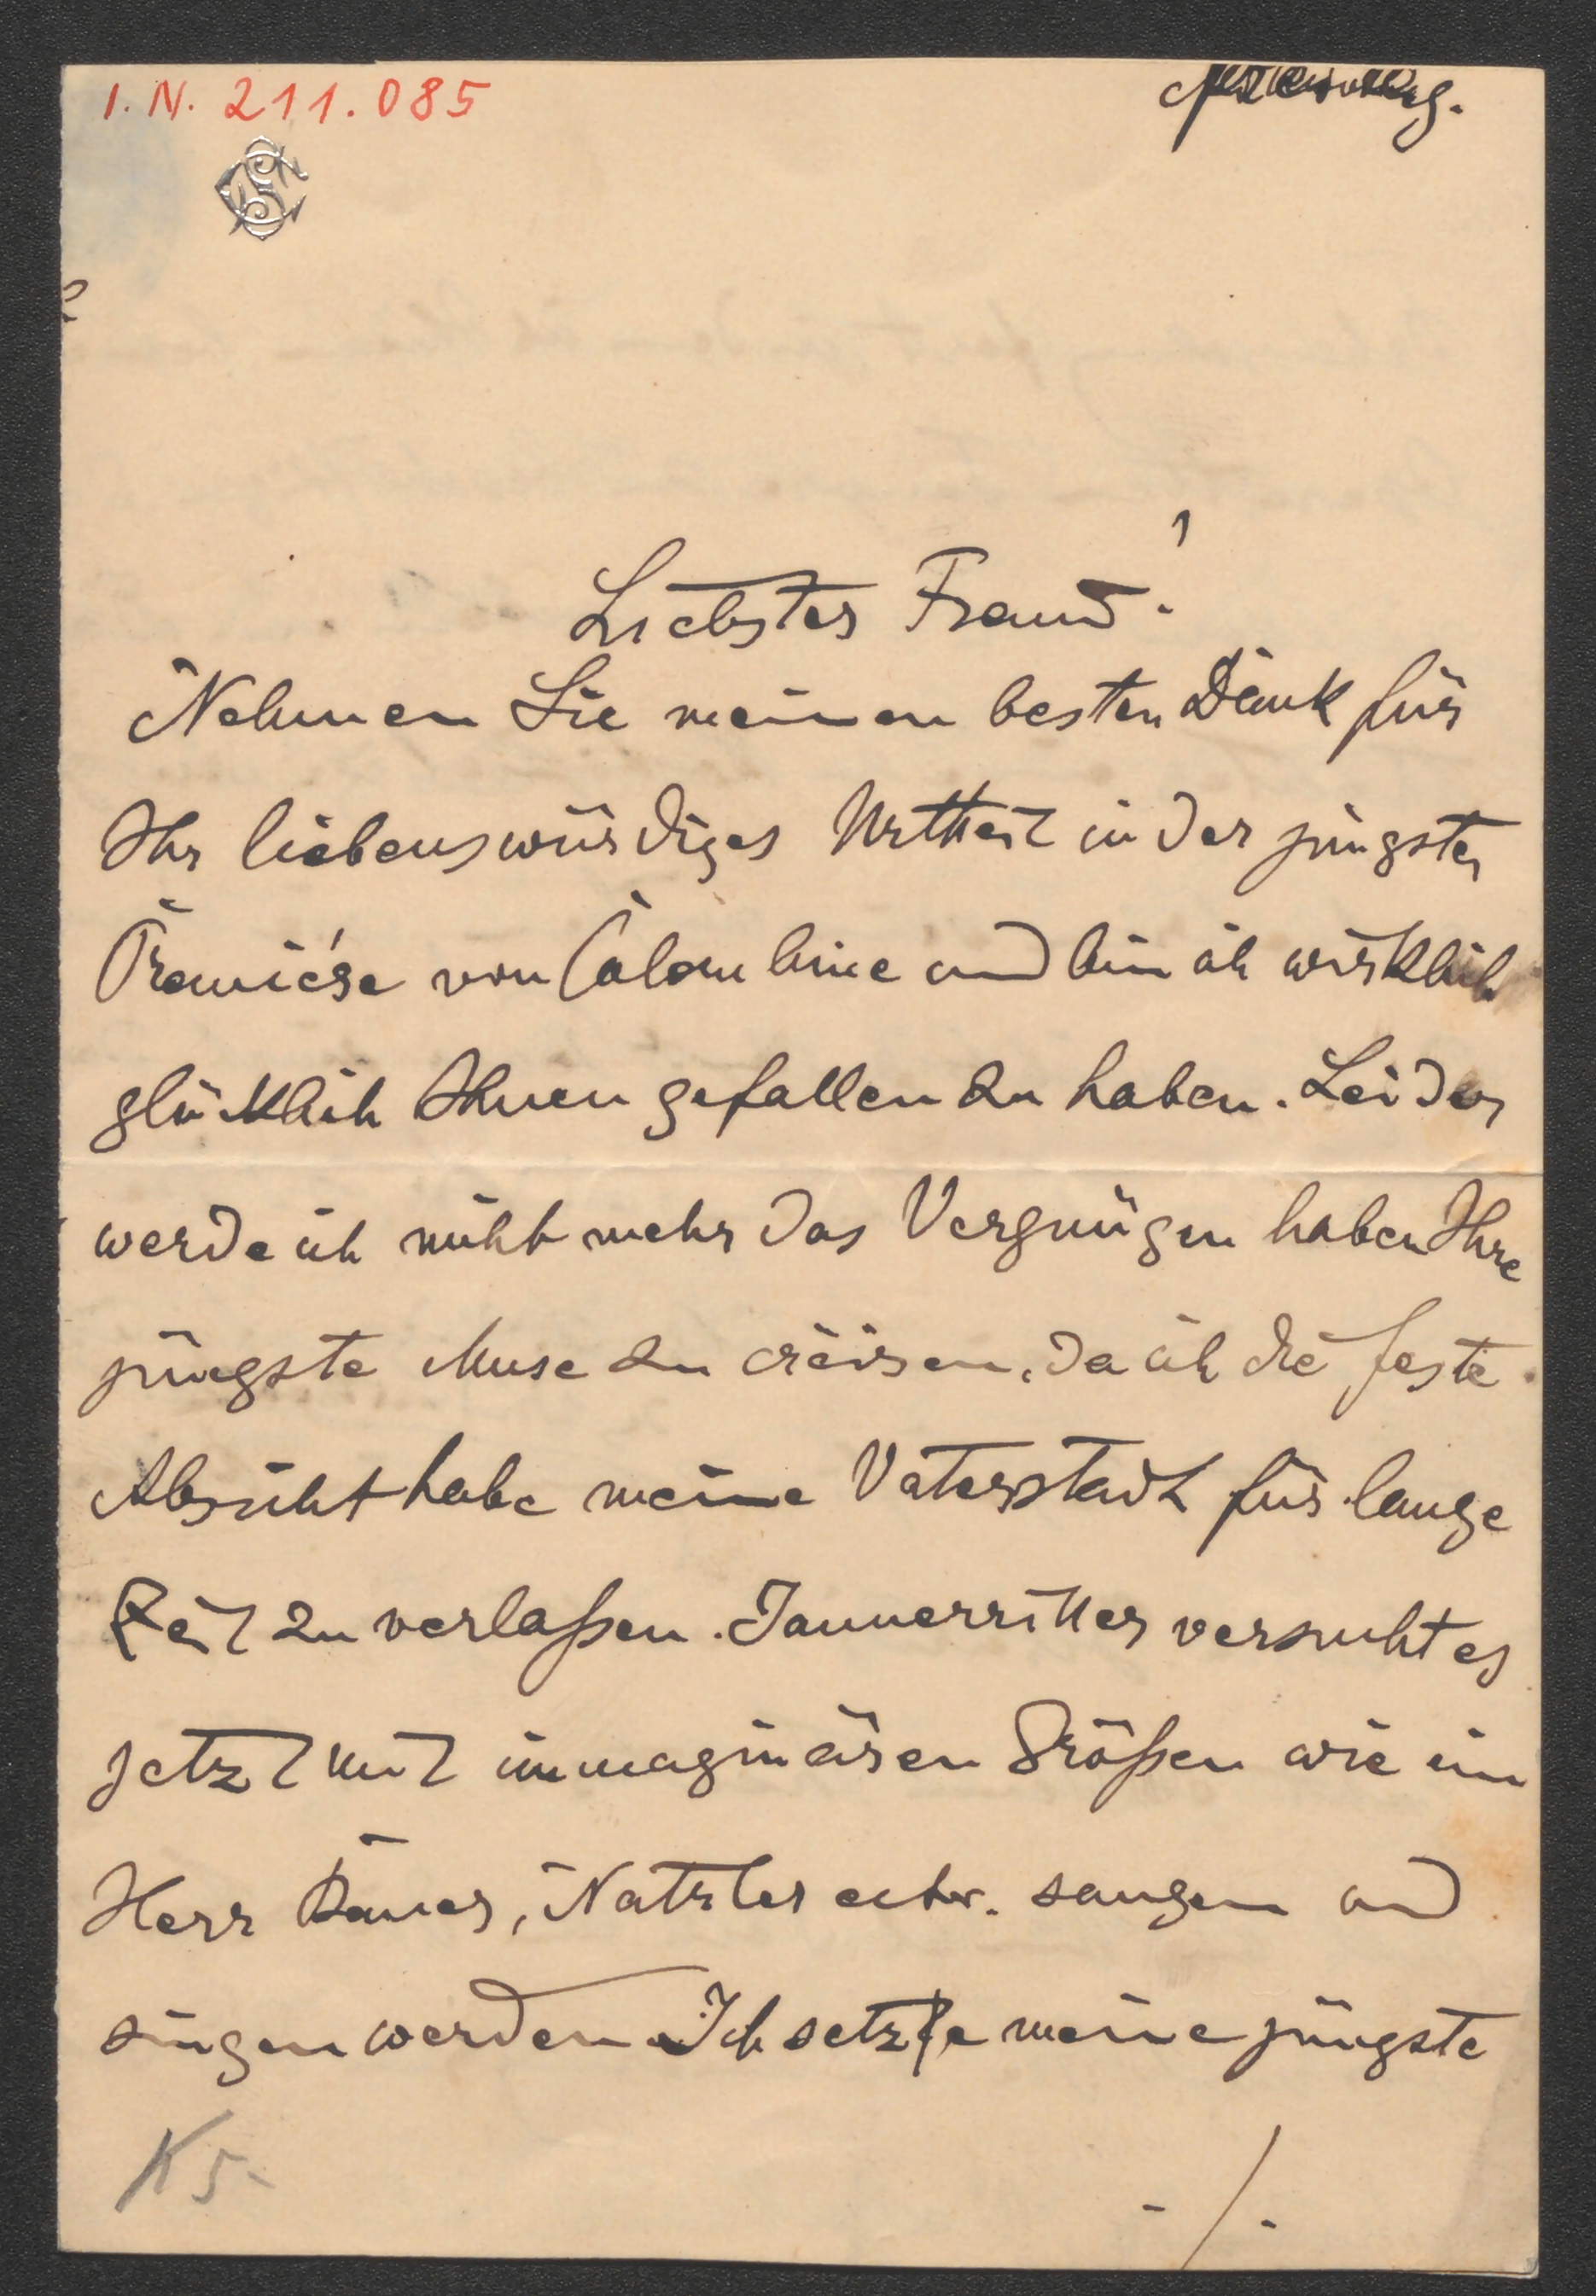 I. N. 211.085
Liebster Freund!
Nehmen Sie meinen besten Dank für
Ihr liebenswürdiges Urtheil in der jüngsten
Premiére von Colombine und bin ich wirklich
glücklich Ihnen gefallen zu haben. Leider
werde ich nicht mehr das Vergnügen haben Ihre
jüngste Muse zu creiren, da ich die feste
Absicht habe meine Vaterstadt für lange
Zeit zu verlaßen. Jauner versucht es
jetzt mit immaginären Größen wie ein
Herr Bauer, Natzler ectr. sangen und
singen werden. Ich setzte meine jüngste
K 5-
- / .